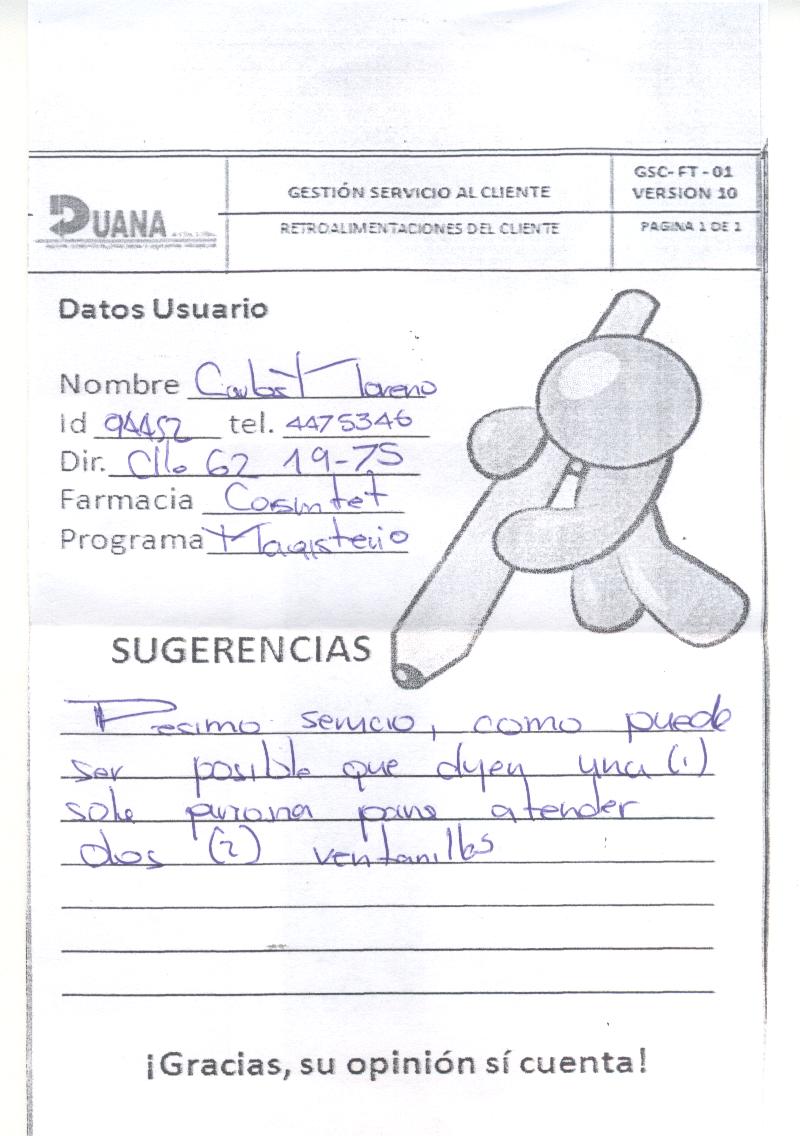 GESTIÓN SERVICIO AL CLIENTE
GSC- FT - 01
VERSION 10
DUANA
RETROALIMENTACIONES DEL CLIENTE
PAGINA 1 DE 1
Datos Usuario
Nombre Carlos Moreno
Id 94452 tel. 4475346
Dir. Clle 62 19-75
Farmacia Cosmitet
Programa Magisterio
SUGERENCIAS
Pesimo servicio, como puede
ser posible que dejen una (1)
sola persona para atender
dos (2) ventanillas
¡Gracias, su opinión sí cuenta!